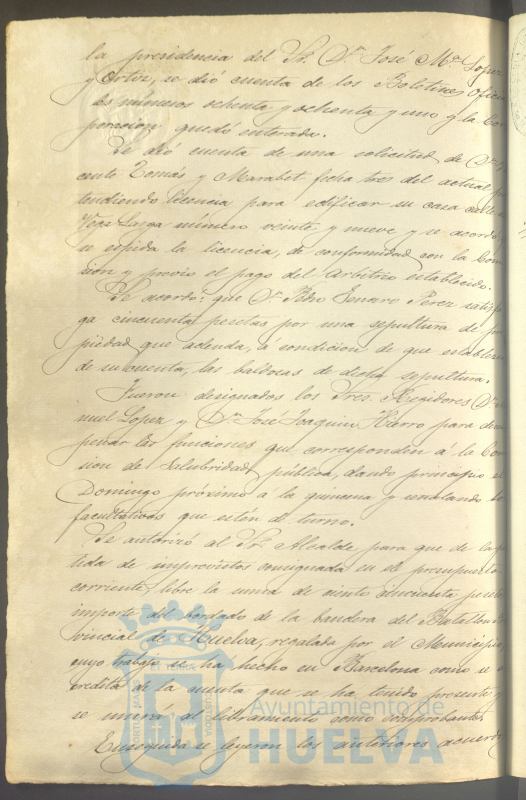 la presidencia del Sr. Dn. José Ma. Lopez
y Ortiz, se dió cuenta de los Boletines Ofici
les números ochenta y ochenta y uno y la Co
poracion quedó enterada.
Se dió cuenta de una solicitud de Dn.
cente Tomás y Marabet fecha tres del actual
tendiendo licencia para edificar su casa calle
Larga número veinte y nueve y se acordó
se espida la licencia, de conformidad con la Com
sion y previo el pago del arbitrio establecido.
Se acordó: que Dn. Pedro Genaro Perez satisfa
ga cincuenta pesetas por una sepultura de pro
piedad que adeuda, á condicion de que establezca
de su cuenta, las baldosas de dicha sepultura.
Fueron designados los Sres. Regidores Dn.
nuel Lopez y Dn. José Joaquin Hierro para desem
peñar las funciones que corresponden á la Com
sion de Salubridad pública, dando principio el
Domingo próximo á la quincena y señalando los
facultativos que estén de turno.
Se autorizó al Sr. Alcalde para que de la
tida de imprevistos consignada en el presupuesto
corriente, libre la suma de ciento cincuenta pesetas
importe del bordado de la bandera del Batallon
vincial de Huelva, regalada por el Municipio,
cuyo trabajo se ha hecho en Barcelona como se
credita de la cuenta que se ha tenido presente y
se unirá al libramiento como comprobante.
Enseguida se leyeron los anteriores acuerd
Ayuntamiento de
HUELVA